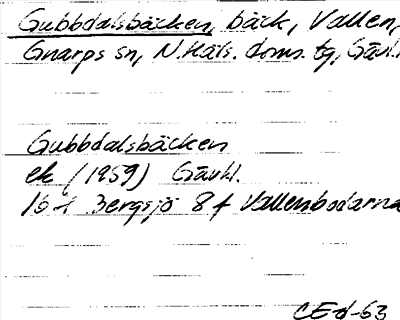 Gubbdalsbäcken, bäck, Vallen,
Gnarps sn, N.Häls. doms. tg, Gävl.
Gubbdalsbäcken
ek (1959) Gävhl.
16 f Bergsjö 8 f Vallenbodarna
CEd-63